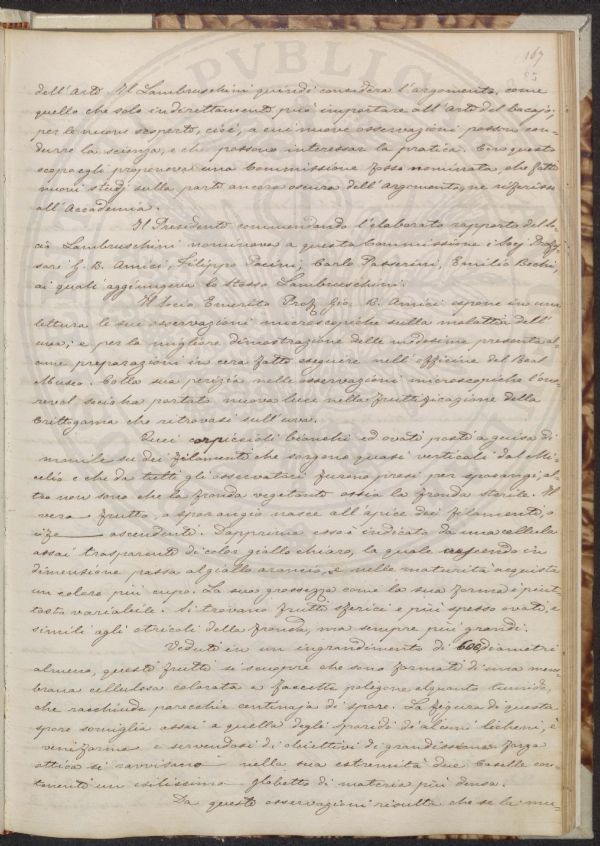 167
85
dell'Arte Il Lambruschini quindi considera l'argomento, come
quello che solo indirettamente può importare all'Arte del bacajo,
per le nuove scoperte, cioè, a cui nuove osservazioni possono con-
durre la scienza, e che possono interessar la pratica. Ciro questo
scopo egli proponeva una Commissione fosse nominata, che fatti
nuovi studj sulla parte ancora oscura dell'Argomento, ne riferisse
all'Accademia.
Il Presidente commendando l'elaborato rapporto del So-
cio Lambruschini nominava a questa Commissione i Socj Profes-
sori G. B. Amici, Filippo Pacini, Carlo Passerini, Emilio Bechi,
ai quali aggiungeva lo stesso Lambruschini.
Il Socio Emerito Prof. Gio. B. Amici espone in una
lettura le sue osservazioni microscopiche sulla malattia dell'
uva; e per la migliore dimostrazione delle medesime presenta al-
cune preparazioni in cera fatte eseguire nell'officine del Real
Museo. Colla sua perizia nelle osservazioni microscopiche l'ono-
revol socio ha portato nuova luce nella fruttificazione della
Crittogama che ritrovasi sull'uva.
Quei corpicciuoli bianchi ed ovati posti a guisa di
monile su dei filamenti che sorgono quasi verticali dal Mi-
celio e che da tutti gli osservatori furono presi per sporangi, al-
tro non sono che la fronda vegetante ossia la fronda sterile. Il
vero frutto, o sporangio nasce all'apice dei filamenti, o
ife ascendenti. Dapprima esso è indicato da una cellula
assai trasparente di color giallo chiaro, la quale crescendo in
dimensione passa al giallo arancio, e nelle maturità acquista
un colore più cupo. La sua grossezza come la sua forma è piut-
tosto variabile. Si trovano frutti sferici e più spesso ovati, e
simili agli otricoli della fronda, ma sempre più grandi.
Veduti in un ingrandimento di 600 diametri
almeno, questi frutti si scuopre che sono formati di una mem-
brana cellulosa colorata a faccette poligone alquanto tumide,
che racchiude parecchie centinaja di spore. La figura di queste
spore somiglia assai a quella degli sporidi di alcuni licheni, è
reniforme e servendosi di obiettivi di grandissima forza
ottica si ravvisano nella sua estremità due Caselle con-
tenenti un esilissimo globetto di materia più densa.
Da queste osservazioni risulta che se la mu-